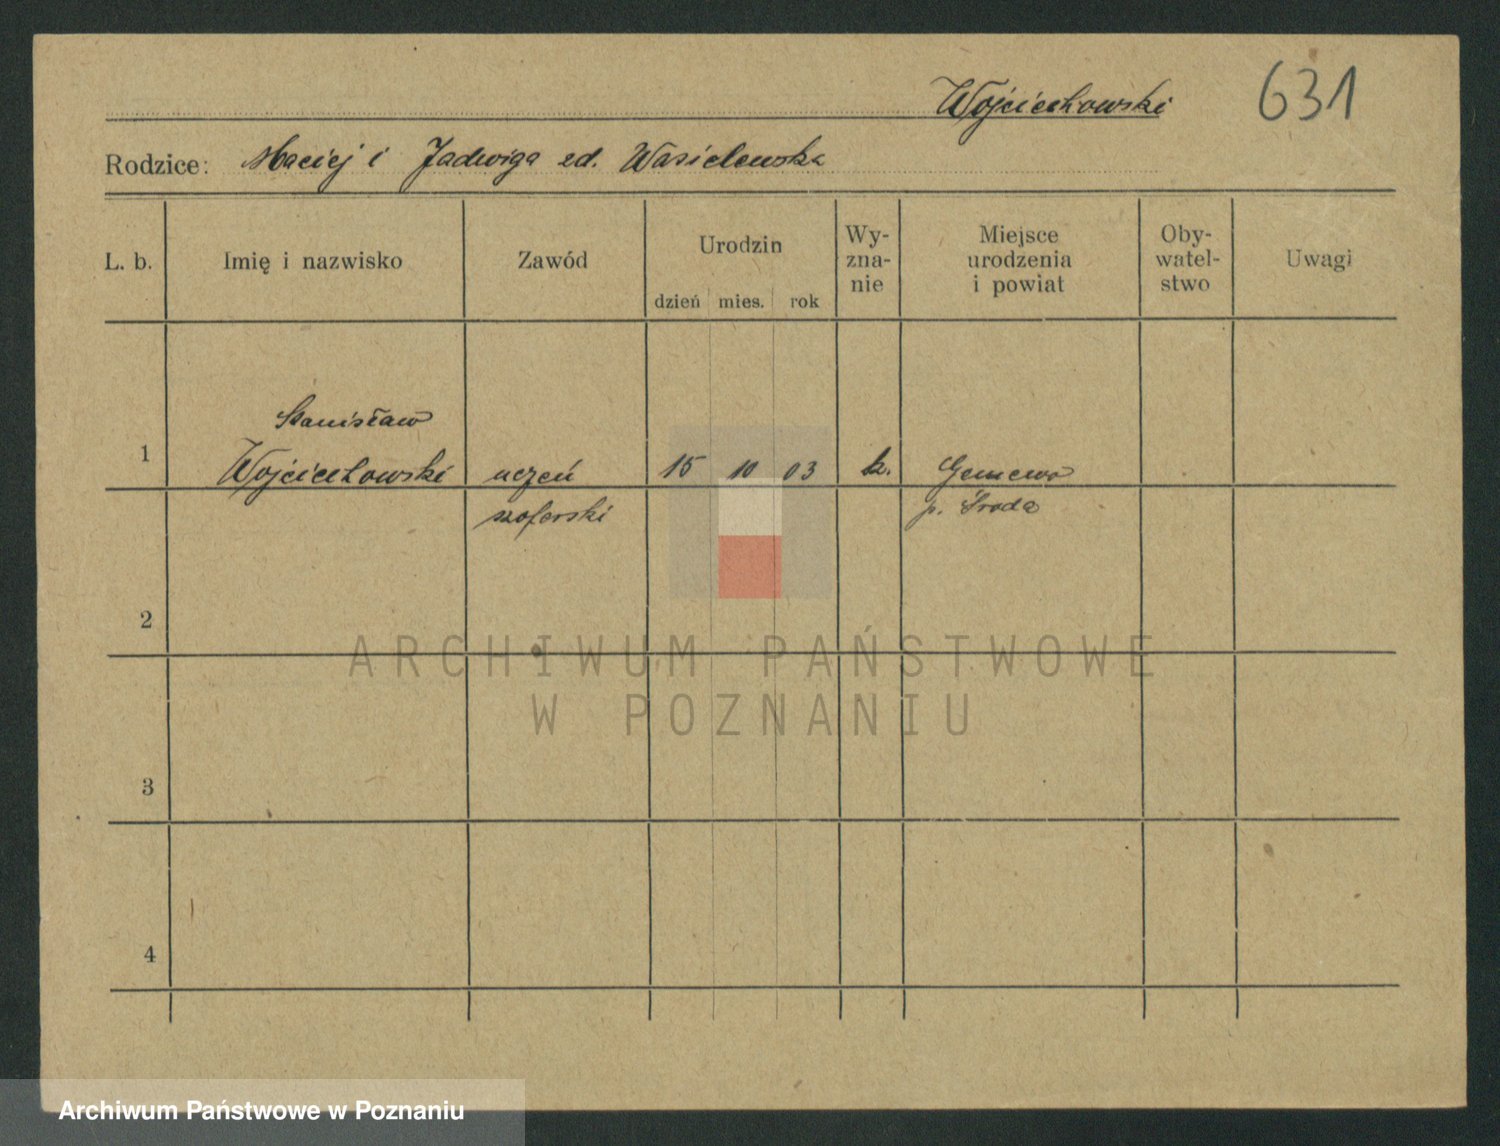 Wojciechowski 631
Rodzice: Maciej i Jadwiga zd. Wasielewska
L. b. Imię i nazwisko Zawód Urodzin dzień mies. rok Wy-zna-nie Miejsce urodzenia i powiat Oby-watel-stwo Uwagi
Stanisław
1 Wojciechowski uczeń 15 10 03 k.
szoferski p. Środa
2
3
4
ARCHIWUM PAŃSTWOWE
W POZNANIU
Archiwum Państwowe w Poznaniu